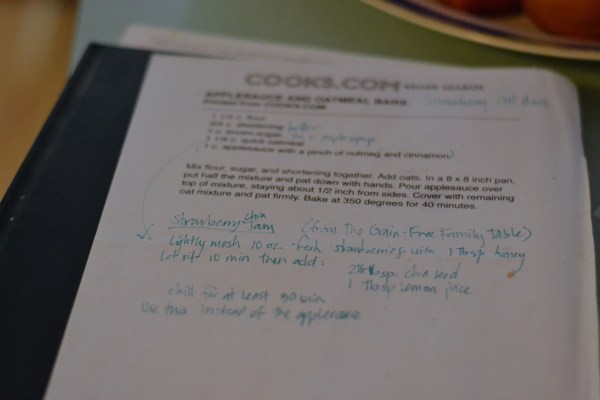 COOKS.COM RECIPE SEARCH
APPLESAUCE AND OATMEAL BARS Strawberry Oat Bars
Printed from COOKS.COM
1 1/2 c. flour
c. shortening butter
c. brown sugar maple syrup
1 1/2 c. quick oatmeal
1 c. applesauce with a pinch of nutmeg and cinnamon
Mix flour, sugar, and shortening together. Add oats. In a 8 x 8 inch pan,
put half the mixture and pat down with hands. Pour applesauce over
top of mixture, staying about 1/2 inch from sides. Cover with remaining
oat mixture and pat firmly. Bake at 350 degrees for 40 minutes.
Strawberry chia Jam (from the Grain-Free Family Table)
Lightly mash 10 oz. fresh strawberries with 1 Tbsp honey
Let sit 10 min then add: 2 1/2 tbsp. chia seed
1 Tbsp lemon juice
chill for at least 30 min
Use this instead of the applesauce